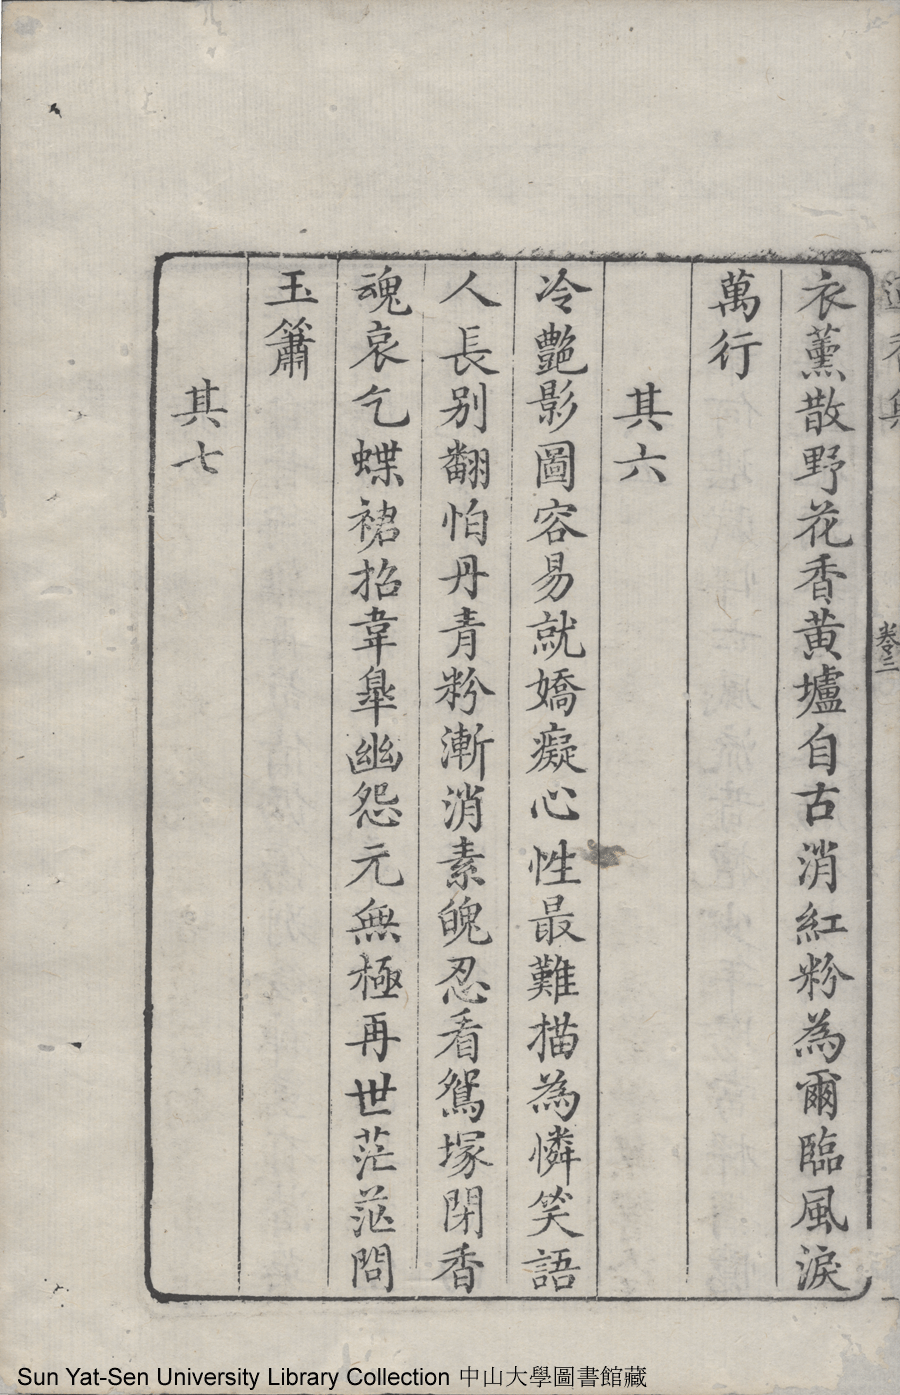 衣薰散野花香黄壚自古消紅粉為爾臨風淚
萬行
其六
冷艷影圖容易就嬌癡心性最難描為憐笑語
人長别翻怕丹青粉漸消素魄忍看鴛塚閉香
魂哀乞蝶裙招韋臯幽怨元無極再世茫茫問
玉簫
其七
卷三
Sun Yat-Sen University Library Collection 中山大學圖書館藏